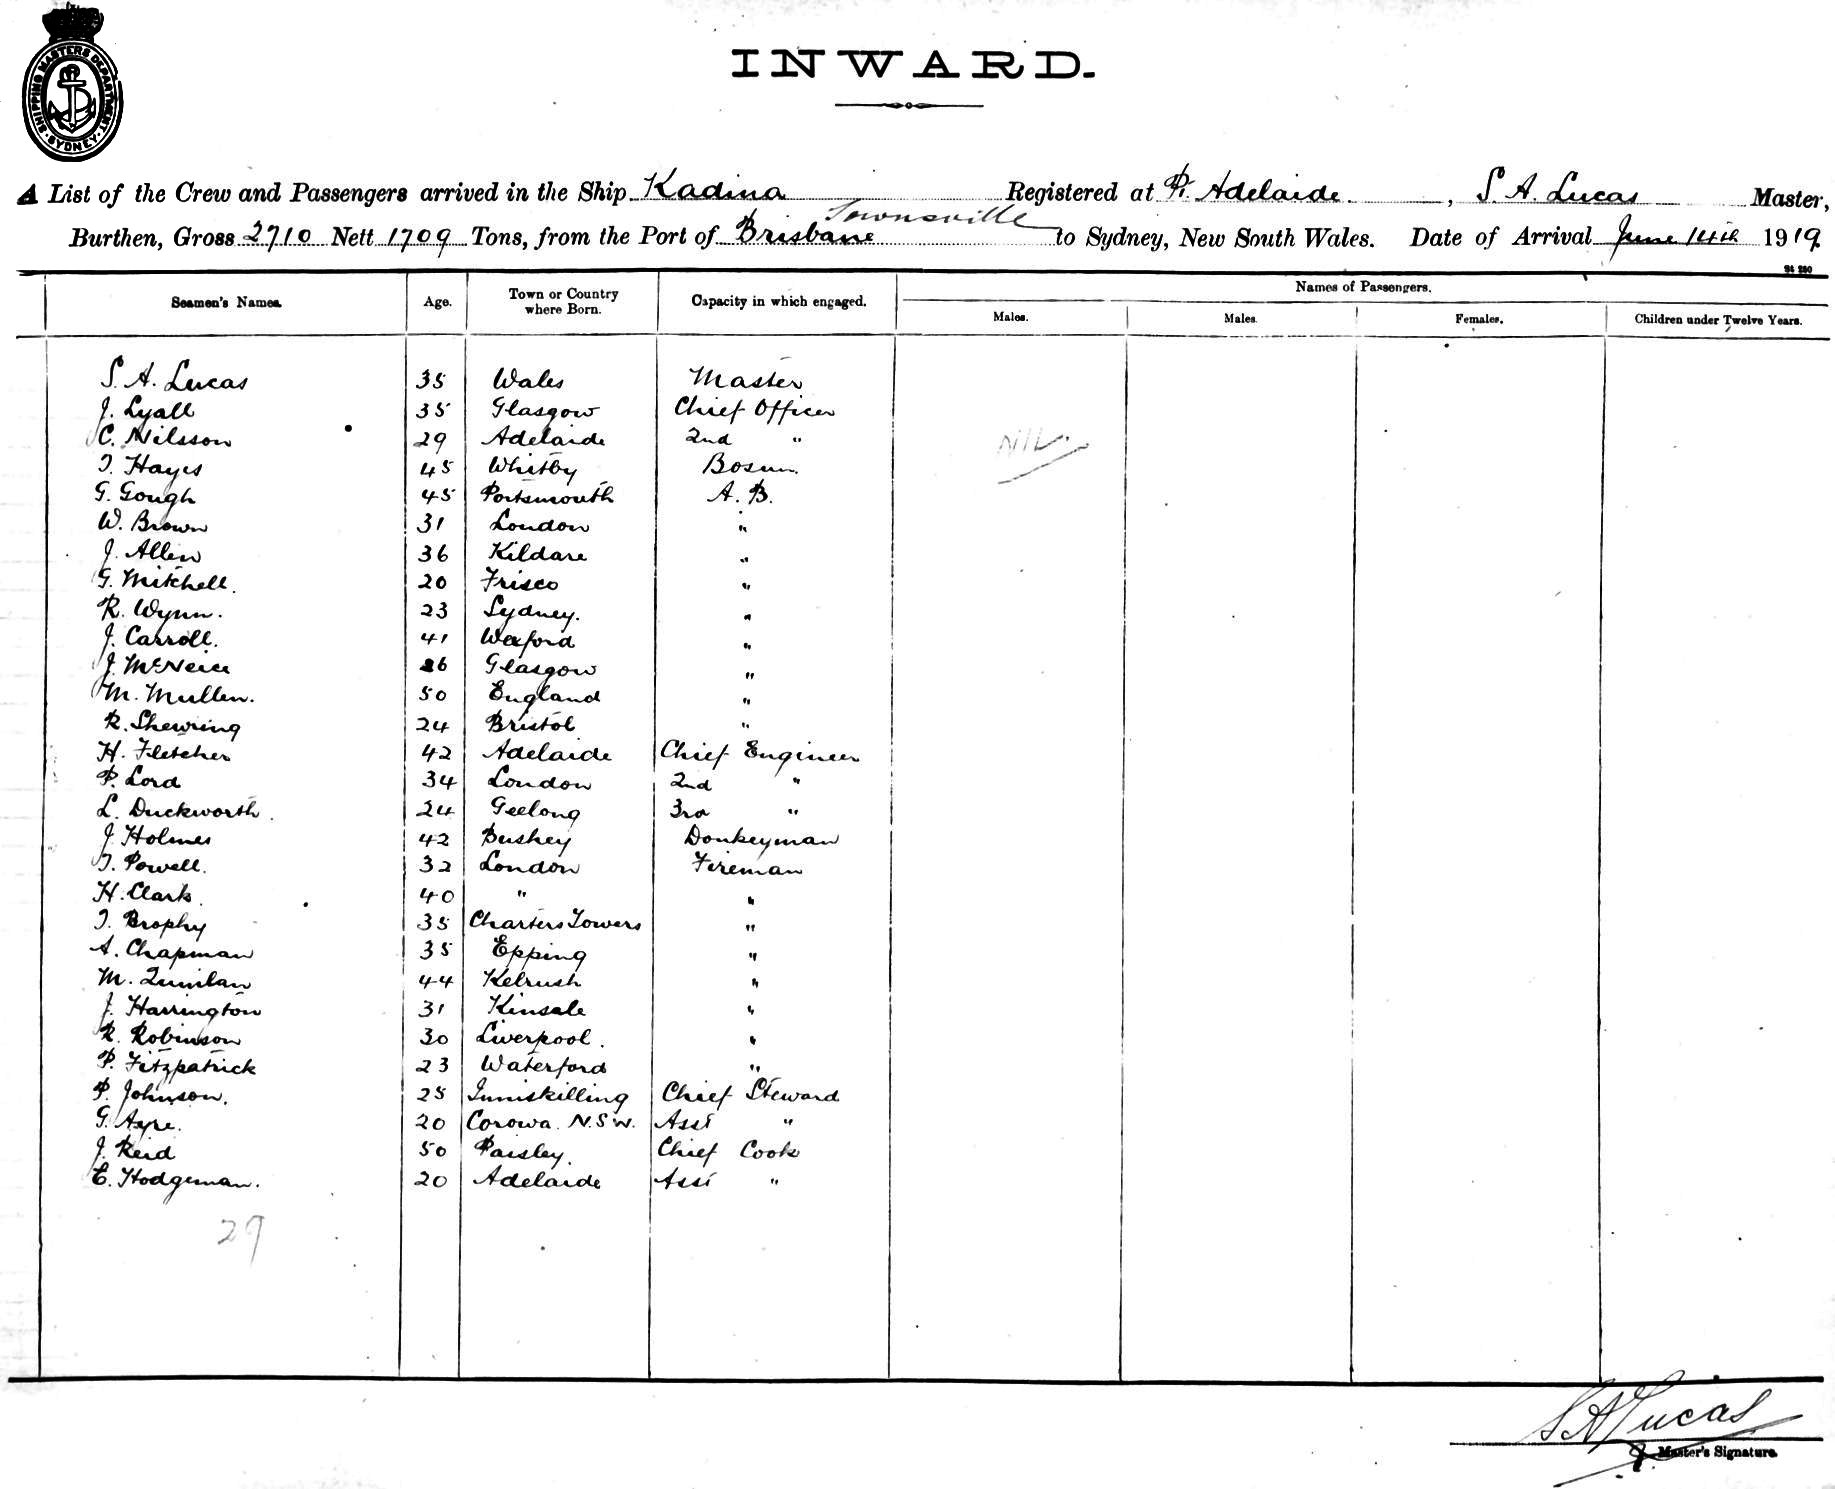 SHIPPING MASTERS DEPARTMENT · SYDNEY ·
INWARD.
A List of the Crew and Passengers arrived in the Ship Kadina Registered at Pt. Adelaide, S A. Lucas Master,
Townsville
Burthen, Gross 2710 Nett 1709 Tons, from the Port of Brisbane to Sydney, New South Wales. Date of Arrival June 14th 1919
St 250
Seamen's Names. Age. Town or Country where Born. Capacity in which engaged. Names of Passengers.
Males. Males. Females. Children under Twelve Years.
S. A. Lucas 35 Wales Master
J. Lyall 35 Glasgow Chief Officer
C. Nilsson 29 Adelaide 2nd "
Nil.
T. Hayes 45 Whitby Bosun
G. Gough 45 Portsmouth A. B.
W. Brown 31 London "
J. Allen 36 Kildare "
G. Mitchell. 20 Frisco "
R. Wynn. 23 Sydney. "
J. Carroll. 41 Wexford "
J. McNeice 26 Glasgow "
M. Mullen. 50 England "
R. Shewring 24 Bristol "
H. Fletcher 42 Adelaide Chief Engineer
P. Lord 34 London 2nd "
L. Duckworth. 24 Geelong 3rd "
J. Holmes 42 Bushey Donkeyman
T. Powell. 32 London Fireman
H. Clark. 40 " "
T. Brophy 35 Charters Towers "
A. Chapman 35 Epping "
M. Quinlan 44 Kelrush "
J. Harrington 31 Kinsale "
R. Robinson 30 Liverpool. "
P. Fitzpatrick 23 Waterford "
P. Johnson. 25 Inniskilling Chief Steward
G. Ayre. 20 Corowa. N.S.W. Asst "
J. Reid 50 Paisley. Chief Cook
E. Hodgeman. 20 Adelaide Asst "
29
S A Lucas
Master's Signature.